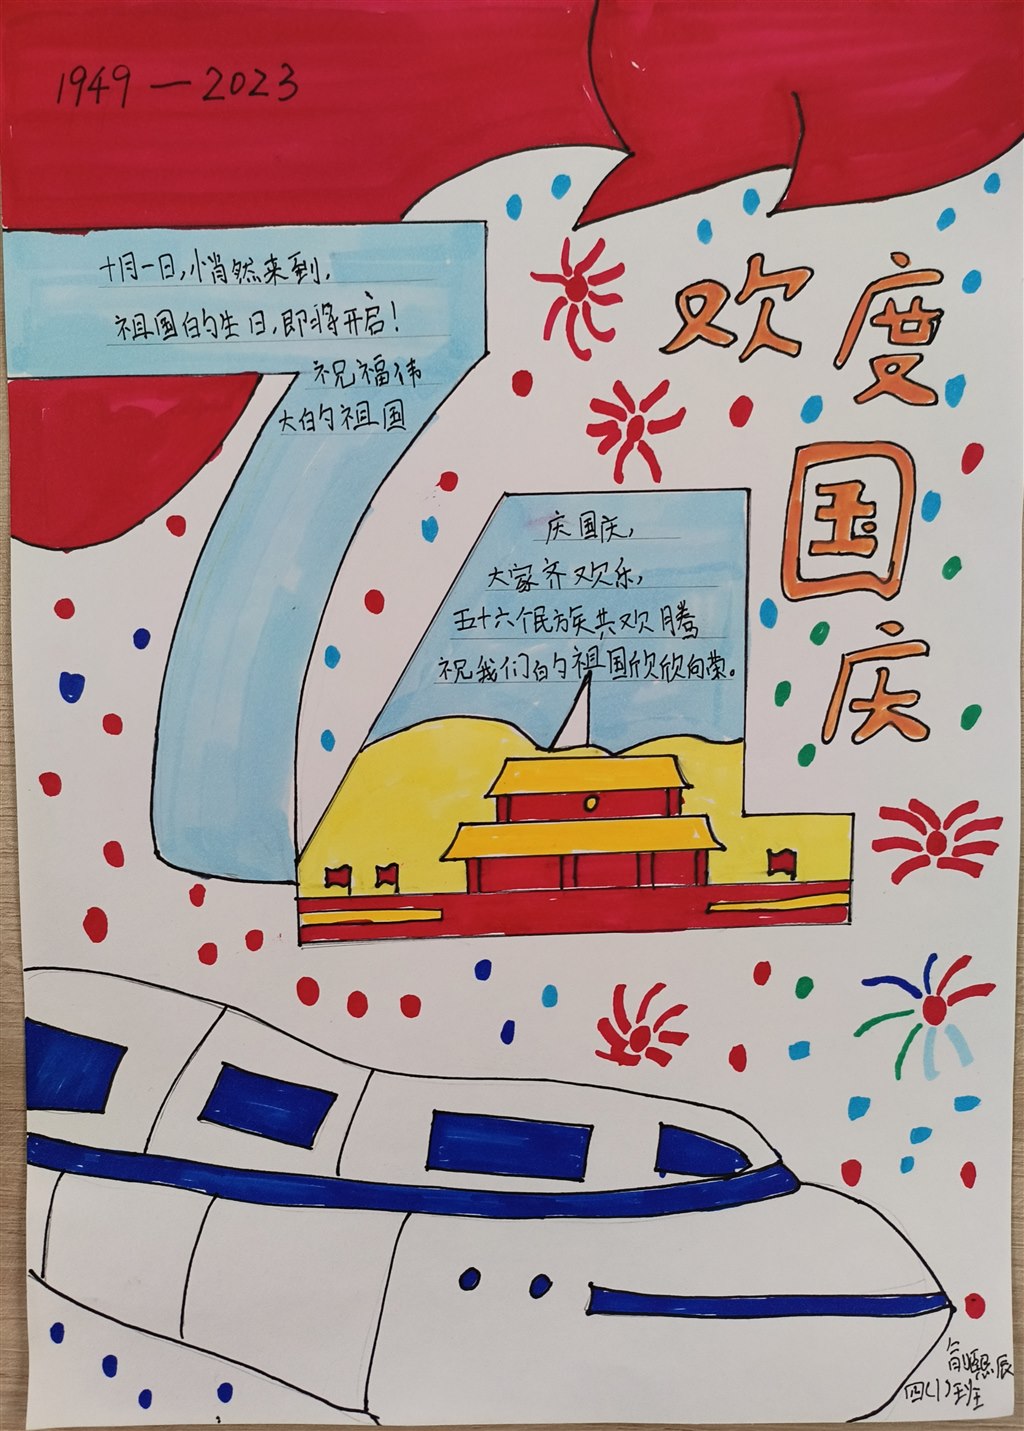 1949—2023
十月一日,悄然来到,
祖国的生日,即将开启!
祝福伟
大的祖国
欢度
国
庆
庆国庆,
大家齐欢乐,
五十六个民族共欢腾
祝我们的祖国欣欣向荣。
俞熙辰
四(1)班